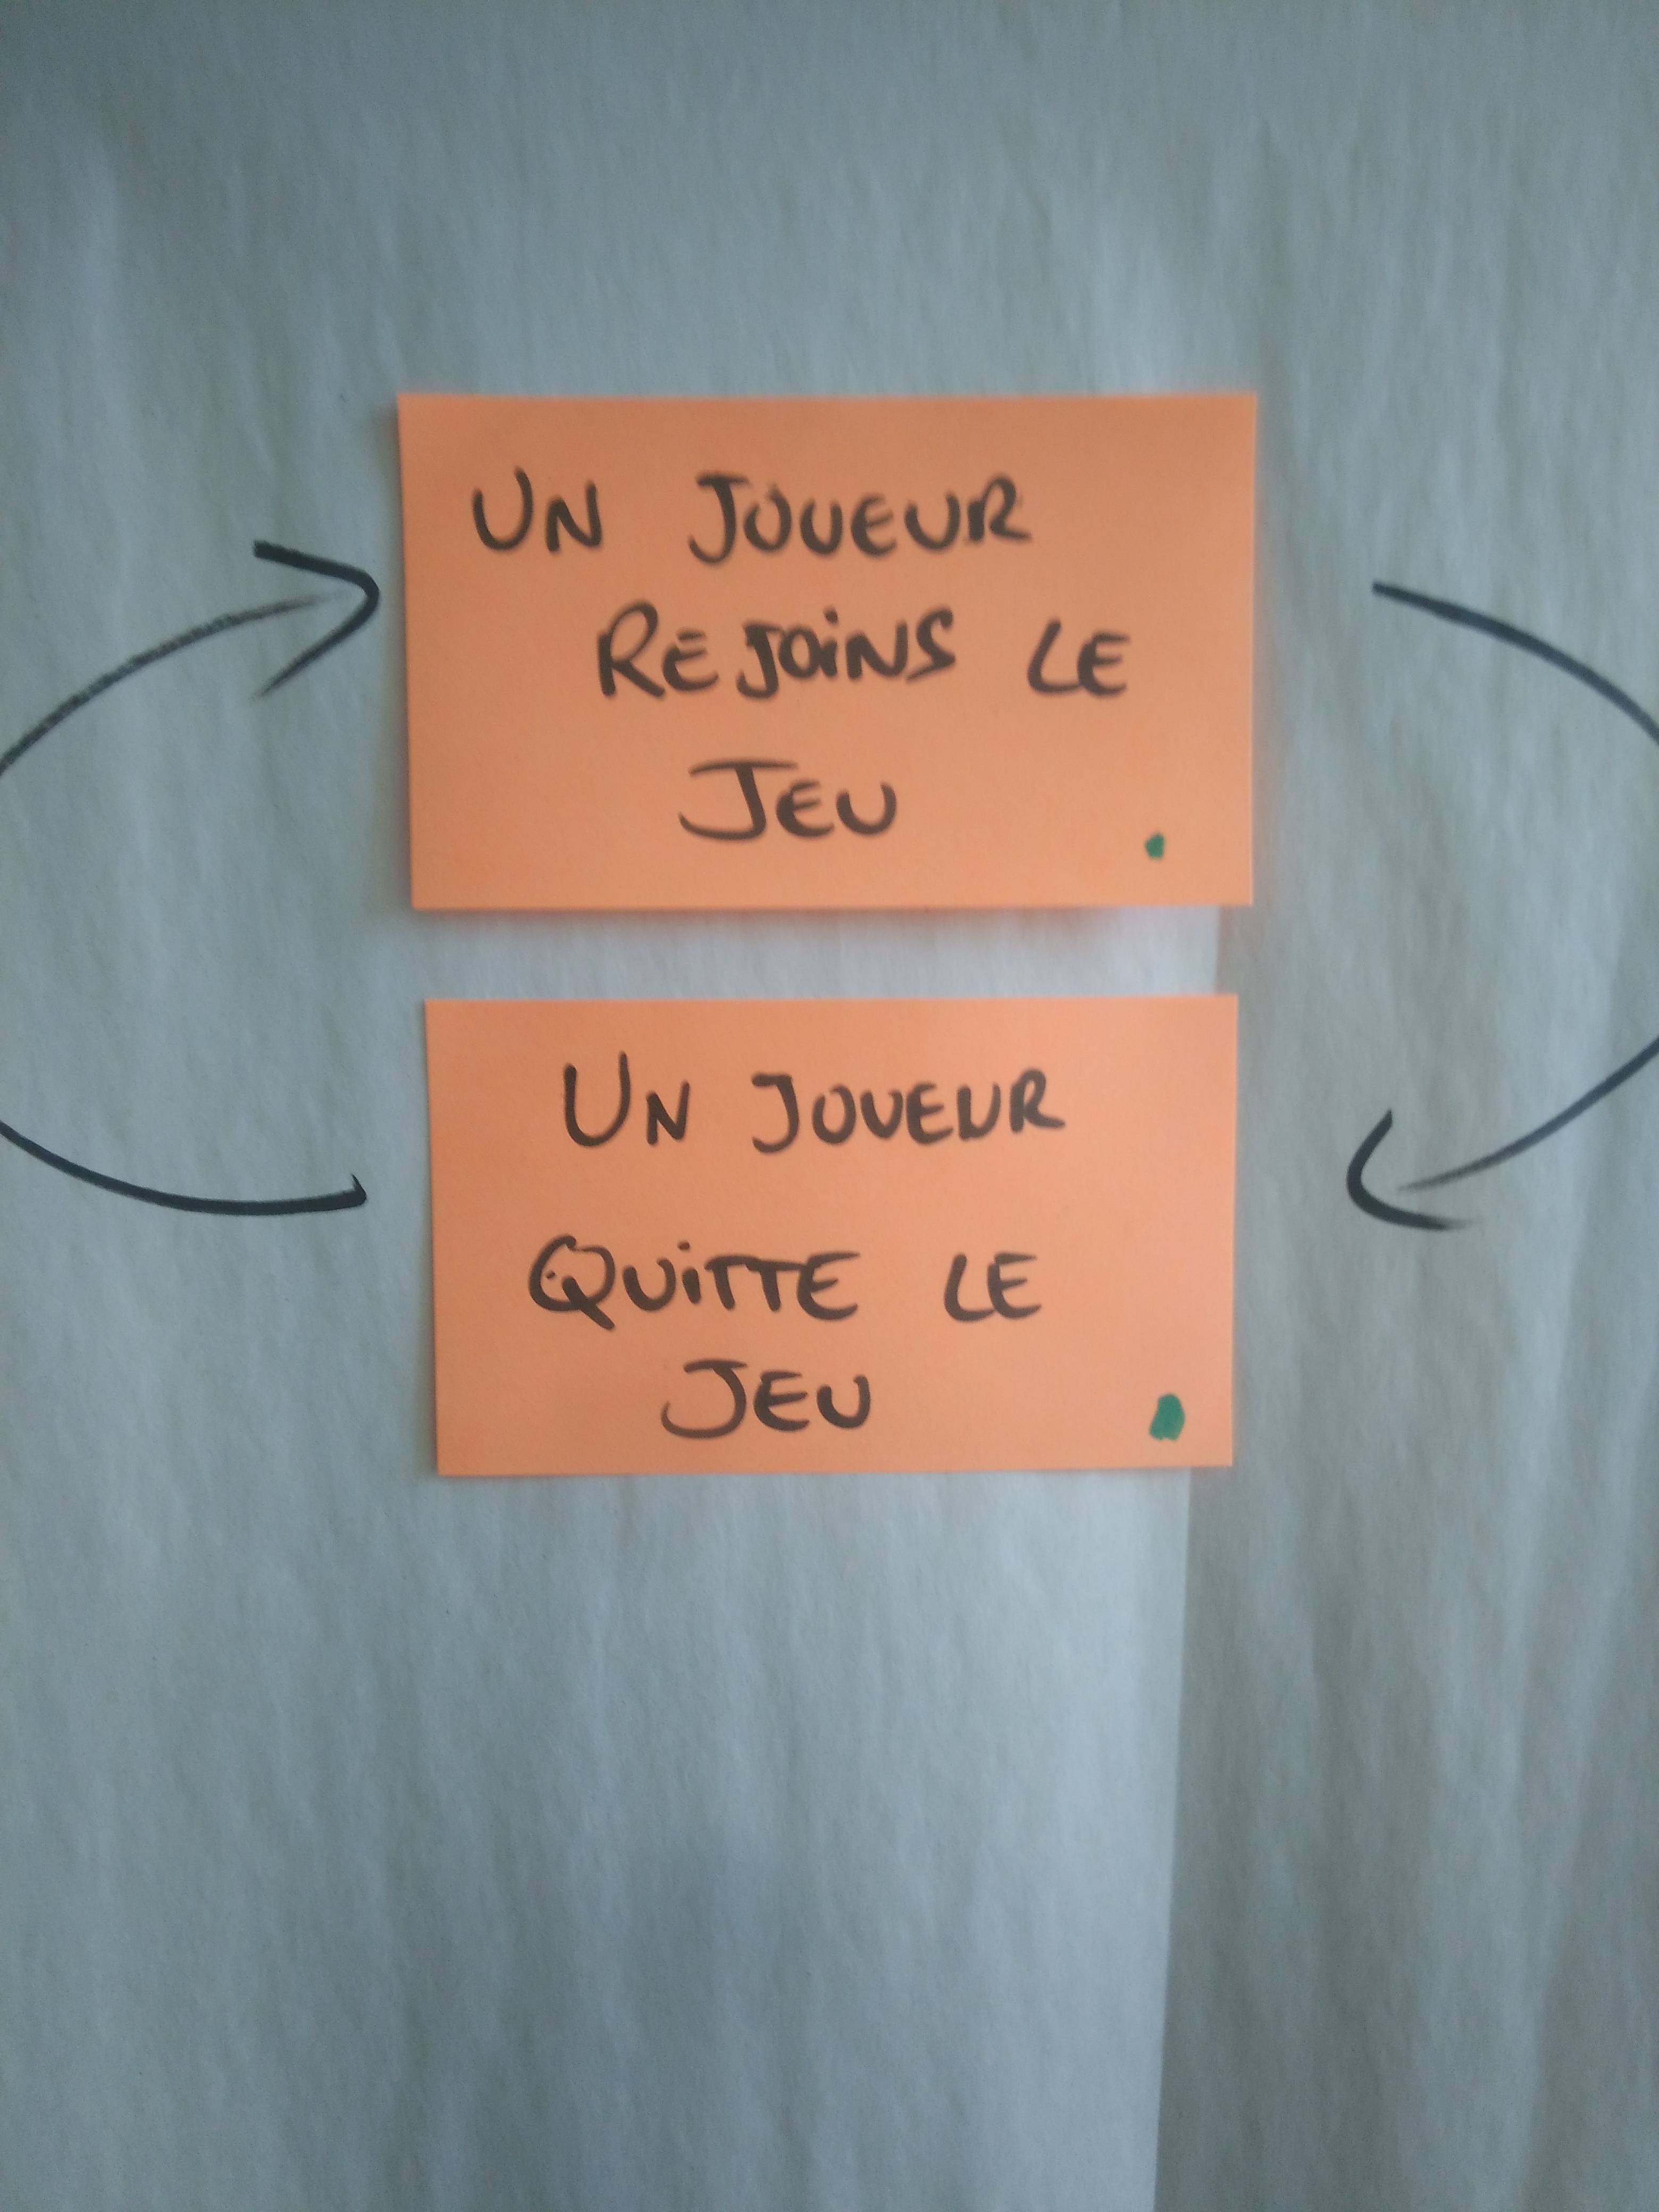 UN JOUEUR
REJOINS LE
JEU
UN JOUEUR
QUITTE LE
JEU